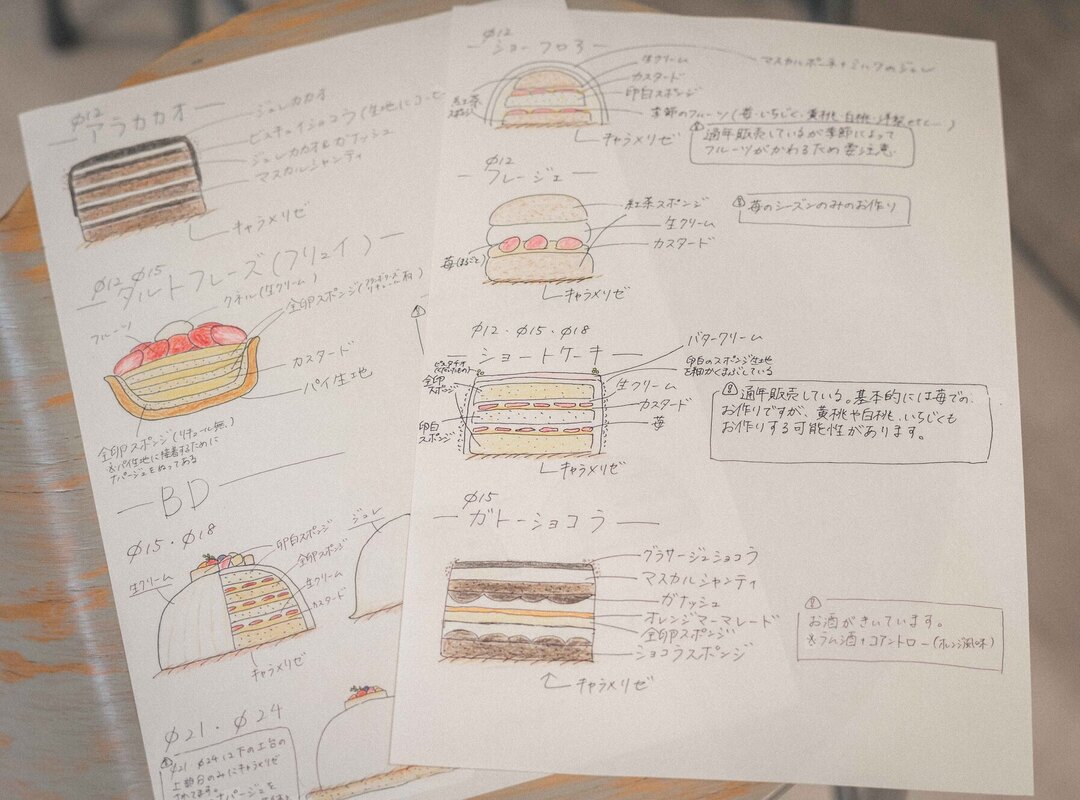 φ12
アラカカオ
ジュレカカオ
ビスキュイショコラ(生地にコーヒー
ジュレカカオ&ガナッシュ
マスカルシャンティ
キャラメリゼ
φ12 φ15
タルトフレーズ(フリュイ)
クネル(生クリーム)
フルーツ
全卵スポンジ(
カスタード
パイ生地
全卵スポンジ(リキュール無)
※パイ生地に接着するために
ナパージュをぬってある
BD
φ15・φ18
生クリーム
卵白スポンジ
全卵スポンジ
生クリーム
カスタード
キャラメリゼ
ジュレ
φ21・φ24
φ21 φ24は下の土台の
上部分のみにキャラメリゼ
されてます。
ナパージュを
φ12
ショーフロア
生クリーム
カスタード
卵白スポンジ
マスカルポーネ+ミルクのジュレ
紅茶
スポンジ
季節のフルーツ(苺・いちじく・黄桃、白桃、洋梨etc...)
キャラメリゼ
通年販売しているが季節によって
フルーツがかわるため要注意
φ12
フレージェ
紅茶スポンジ
生クリーム
カスタード
苺(まるごと)
キャラメリゼ
苺のシーズンのみのお作り
φ12・φ15・φ18
ショートケーキ
バタークリーム
卵白のスポンジ生地
を細かくまぶしている
ピスタチオ
全卵
スポンジ
生クリーム
カスタード
苺
卵白
スポンジ
キャラメリゼ
通年販売している。基本的には苺での
お作りですが、黄桃や白桃、いちじくも
お作りする可能性があります。
φ15
ガトーショコラ
グラサージュショコラ
マスカルシャンティ
ガナッシュ
オレンジマーマレード
全卵スポンジ
ショコラスポンジ
キャラメリゼ
お酒がきいています。
※ラム酒+コアントロー(オレンジ風味)